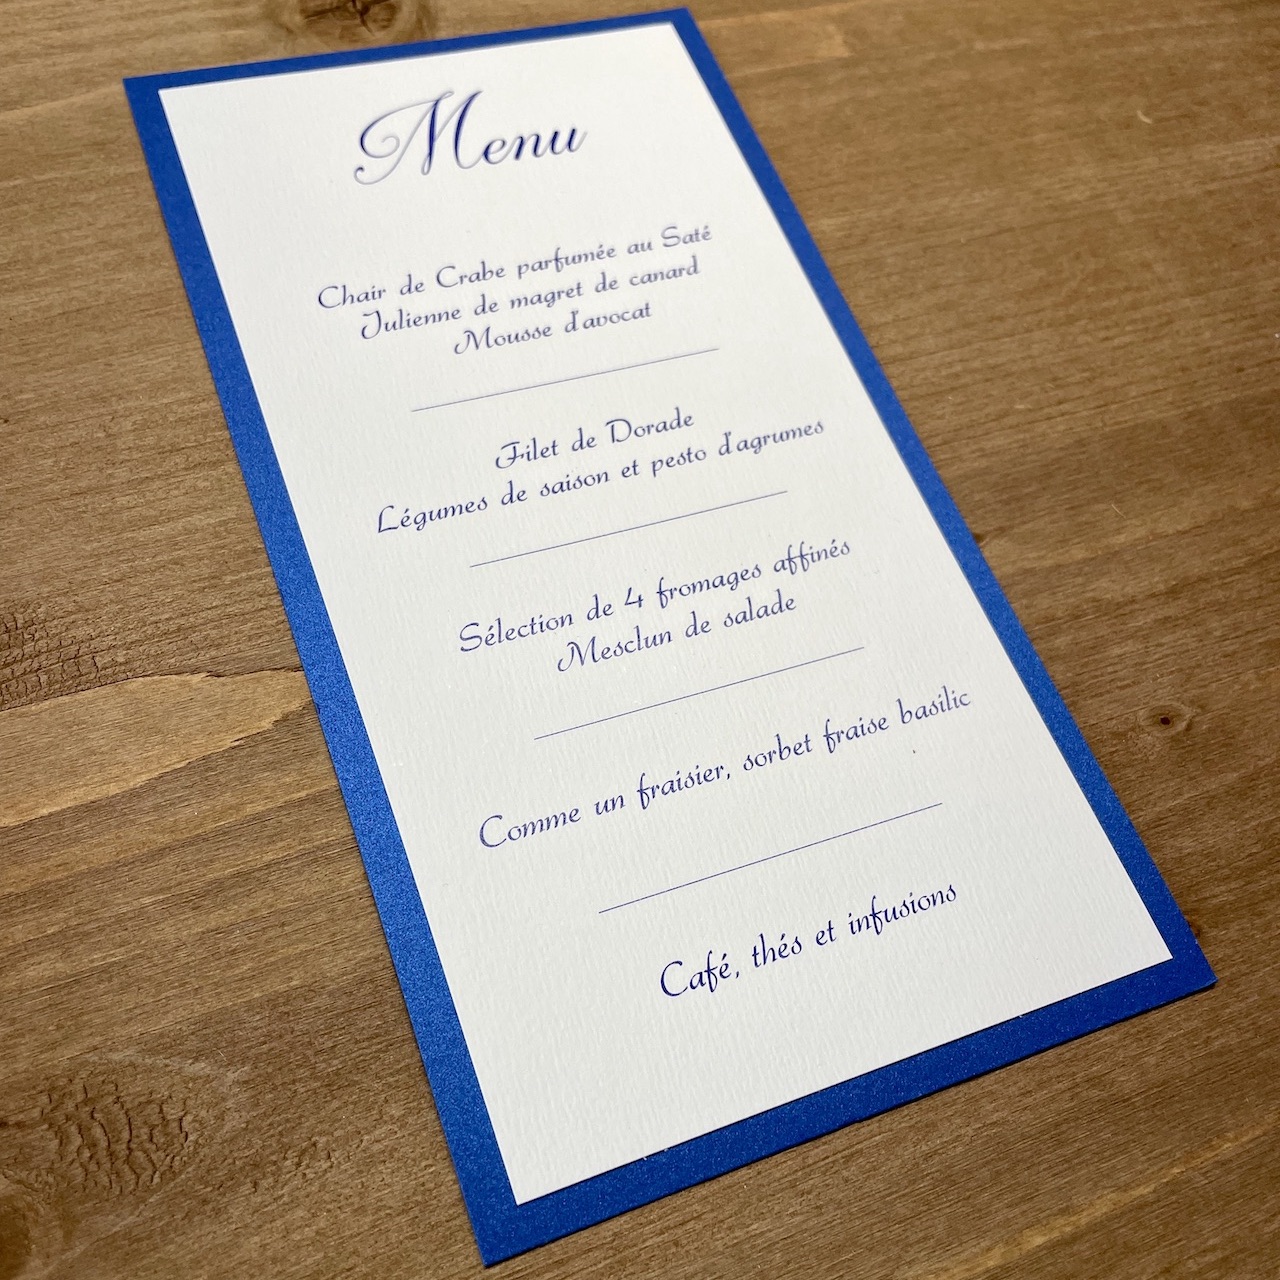 Menu
Chair de Crabe parfumée au Saté
Julienne de magret de canard
Mousse d'avocat
Filet de Dorade
Légumes de saison et pesto d'agrumes
Sélection de 4 fromages affinés
Mesclun de salade
Comme un fraisier, sorbet fraise basilic
Café, thés et infusions